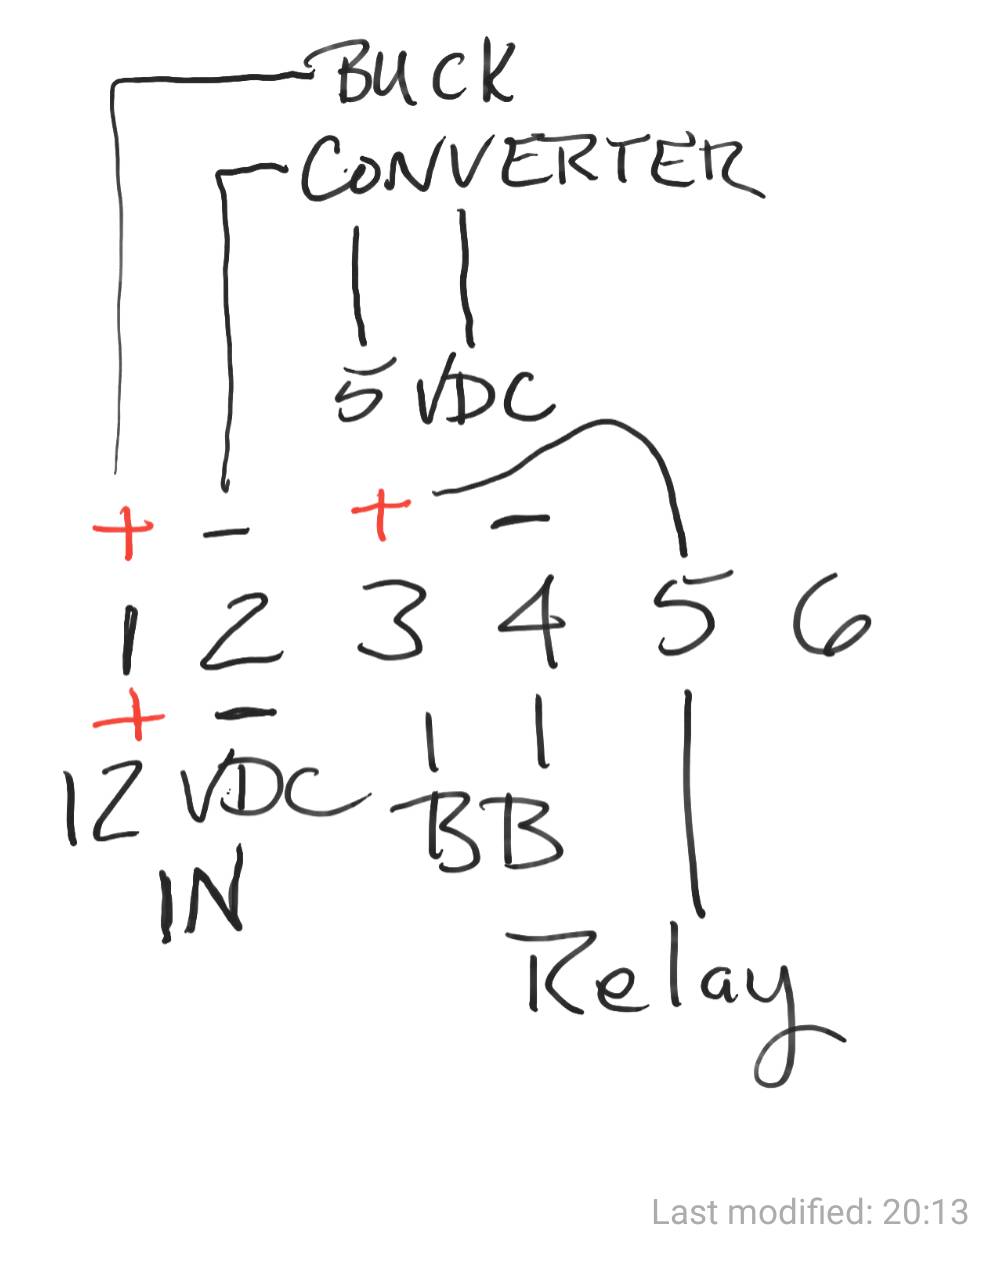 BUCK
CONVERTER
5 VDC
+ - + -
1 2 3 4 5 6
+ -
12 VDC
BB
IN
Relay
Last modified: 20:13